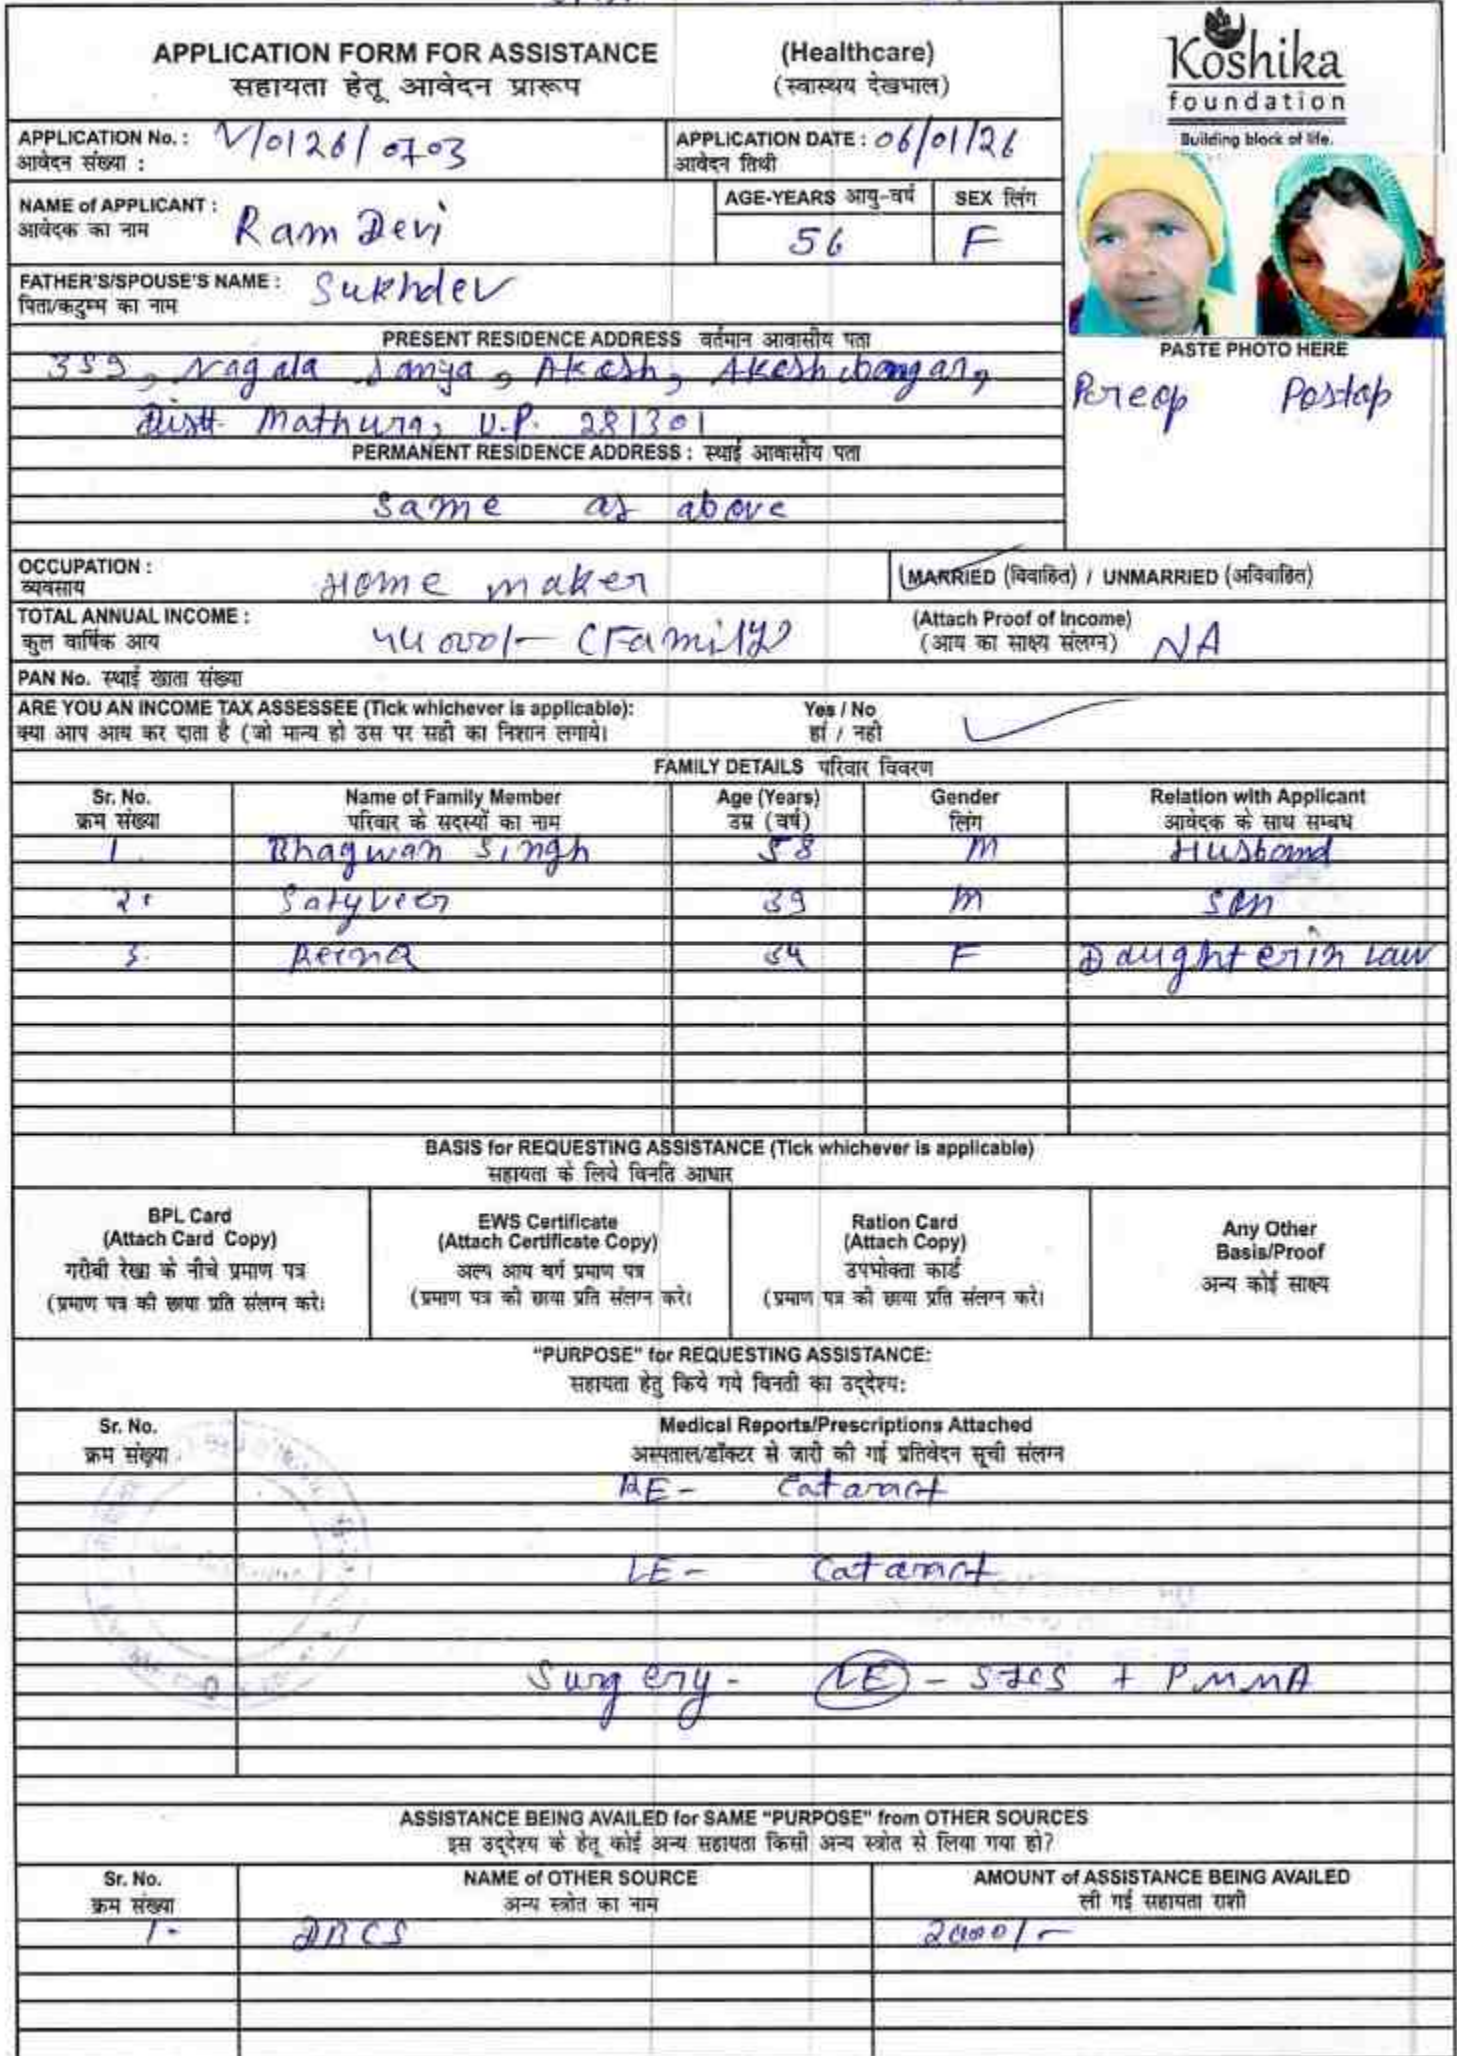 APPLICATION FORM FOR ASSISTANCE (Healthcare)
सहायता हेतू आवेदन प्रारूप (स्वास्थय देखभाल)
Koshika
foundation
Building block of life.
APPLICATION No.: V/0126/0703 APPLICATION DATE: 06/01/26
आवेदन संख्या : आवेदन तिथी
NAME of APPLICANT: Ram Devi AGE-YEARS आयु-वर्ष SEX लिंग
आवेदक का नाम 56 F
FATHER'S/SPOUSE'S NAME: Sukhdev
पिता/कटुम्म का नाम
PRESENT RESIDENCE ADDRESS वर्तमान आवासीय पता
PASTE PHOTO HERE
Preop Postop
Nagala Akash,
Distt. Mathura, U.P. 281301
PERMANENT RESIDENCE ADDRESS: स्थाई आवासीय पता
same as above
OCCUPATION: Home maker MARRIED (विवाहित) / UNMARRIED (अविवाहित)
व्यवसाय
TOTAL ANNUAL INCOME: 44000/- (Family) (Attach Proof of Income) NA
कुल वार्षिक आय (आय का साक्ष्य संलग्न)
PAN No. स्थाई खाता संख्या
ARE YOU AN INCOME TAX ASSESSEE (Tick whichever is applicable): Yes / No
क्या आप आय कर दाता है (जो मान्य हो उस पर सही का निशान लगाये। हां / नही
FAMILY DETAILS परिवार विवरण
Sr. No. Name of Family Member Age (Years) Gender Relation with Applicant
क्रम संख्या परिवार के सदस्यों का नाम उम्र (वर्ष) लिंग आवेदक के साथ सम्बध
1. Bhagwan Singh 58 M Husband
2. Satyveer 39 M Son
3. 34 F Daughter in Law
BASIS for REQUESTING ASSISTANCE (Tick whichever is applicable)
सहायता के लिये विनति आधार
BPL Card
(Attach Card Copy)
गरीबी रेखा के नीचे प्रमाण पत्र
(प्रमाण पत्र की छाया प्रति संलग्न करे।
EWS Certificate
(Attach Certificate Copy)
अल्प आय वर्ग प्रमाण पत्र
(प्रमाण पत्र की छाया प्रति संलग्न करे।
Ration Card
(Attach Copy)
उपभोक्ता कार्ड
(प्रमाण पत्र की छाया प्रति संलग्न करे।
Any Other
Basis/Proof
अन्य कोई साक्ष्य
"PURPOSE" for REQUESTING ASSISTANCE:
सहायता हेतु किये गये विनती का उद्देश्य:
Sr. No. Medical Reports/Prescriptions Attached
क्रम संख्या अस्पताल/डॉक्टर से जारी की गई प्रतिवेदन सूची संलग्न
RE - Cataract
LE - Cataract
Surgery - LE - SICS + PMMA
ASSISTANCE BEING AVAILED for SAME "PURPOSE" from OTHER SOURCES
इस उद्देश्य के हेतू कोई अन्य सहायता किसी अन्य स्त्रोत से लिया गया हो?
Sr. No. NAME of OTHER SOURCE AMOUNT of ASSISTANCE BEING AVAILED
क्रम संख्या अन्य स्त्रोत का नाम ली गई सहायता राशी
1- DBCS 2000/-